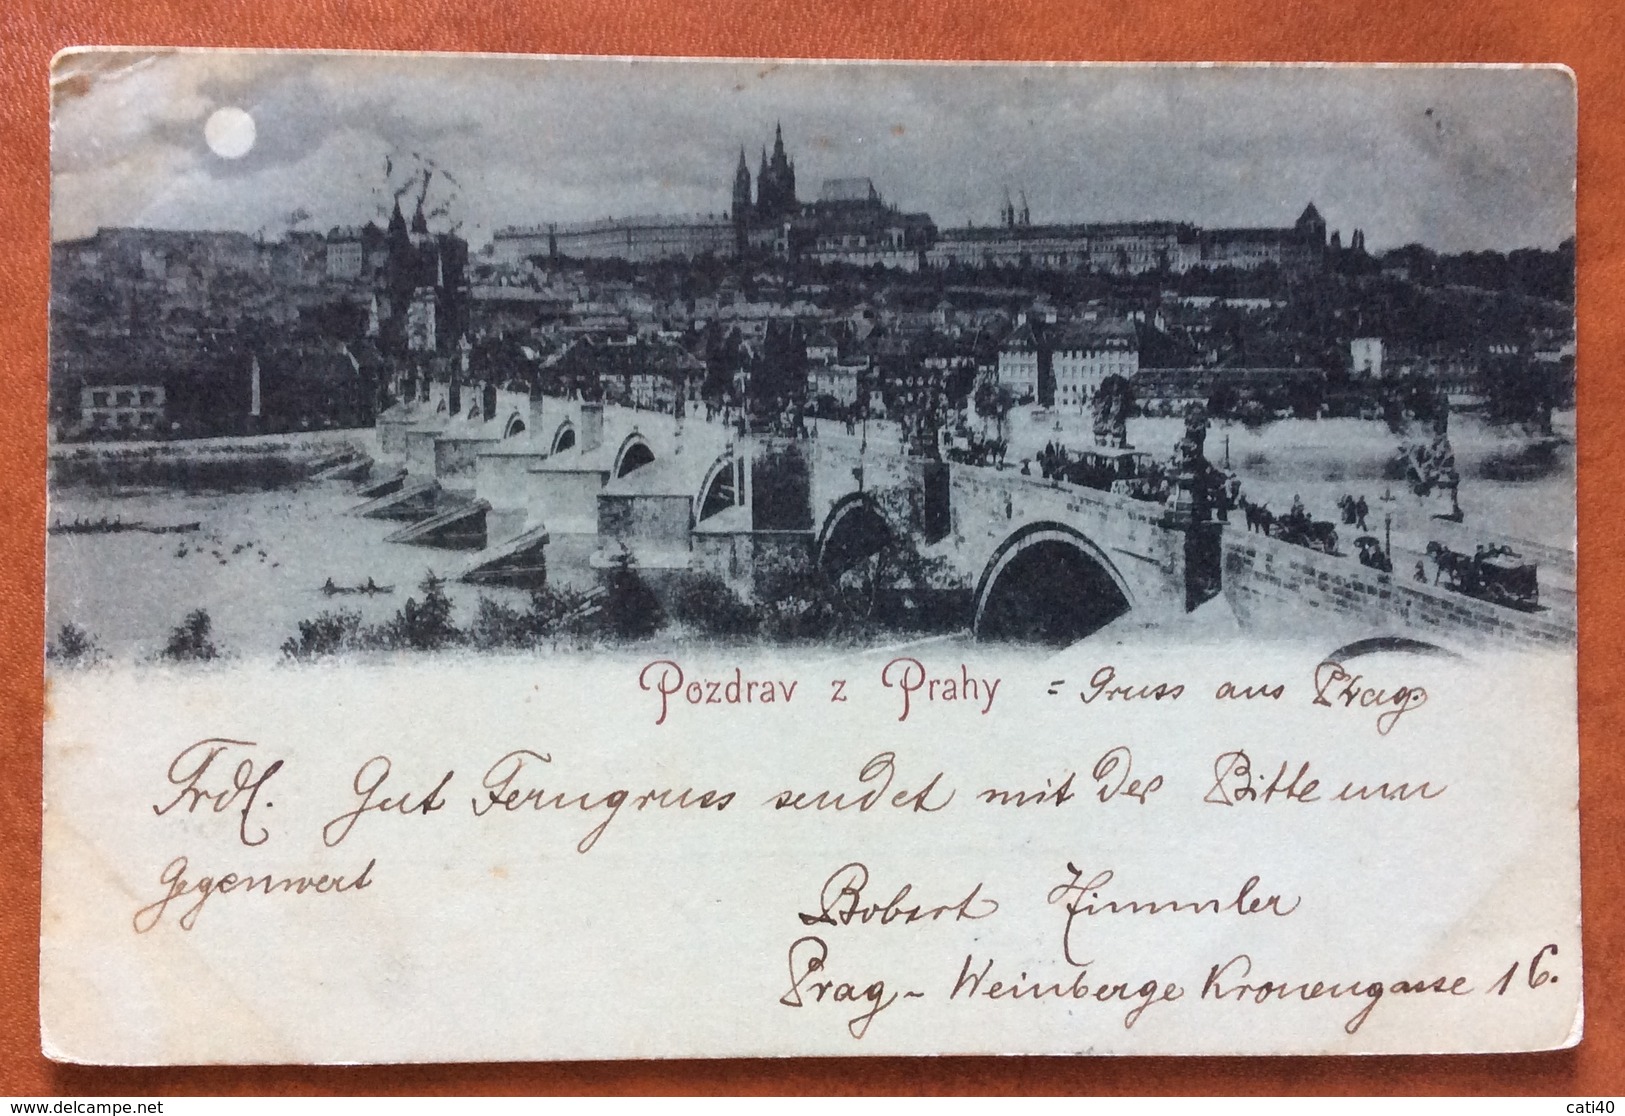 Pozdrav z Prahy = Gruss aus Prag.
Frdl. Gut Ferngruss sendet mit der Bitte um
Gegenwert
Robert Himmler
Prag - Weinberge Kronengasse 16.
cati40